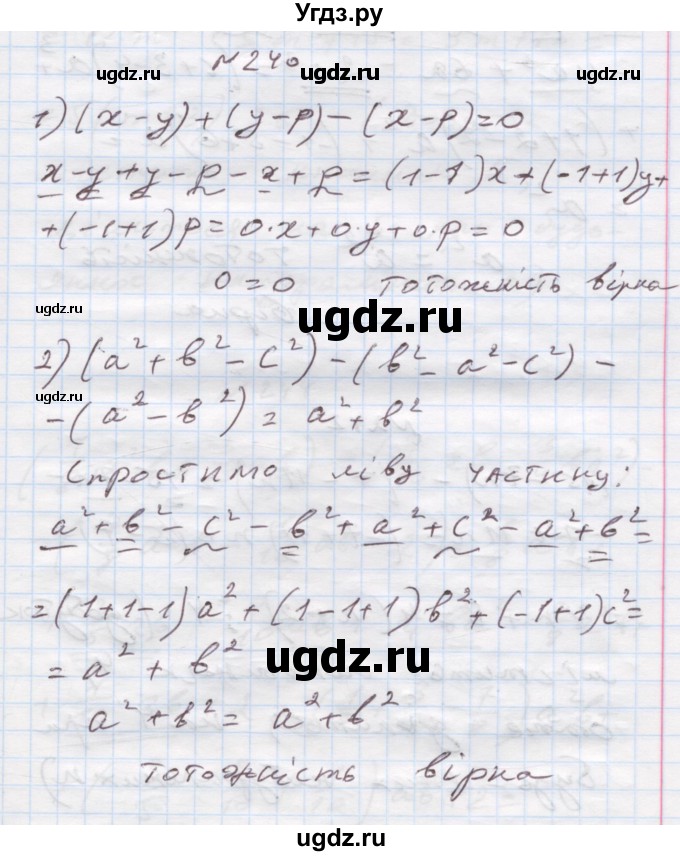 Угдз.ру
№240
ugdz.ru ugdz.ru ugdz.ru
1) (x-y)+(y-p)-(x-p)=0
x-y+y-p-x+p=(1-1)x+(-1+1)y+
+(-1+1)p=0·x+0·y+0·p=0
0=0 тотожність вірка
ugdz.ru
ugdz.ru
2) (a²+b²-c²)-(b²-a²-c²)-
ugdz.ru
-(a²-b²)= a²+b²
Спростимо ліву частину:
a²+b²-c²-b²+a²+c²-a²+b²=
ugdz.ru ugdz.ru
=(1+1-1)a²+(1-1+1)b²+(-1+1)c²=
=a²+b²
ugdz.ru
a²+b²=a²+b²
тотожність вірка
ugdz.ru
ugdz.ru